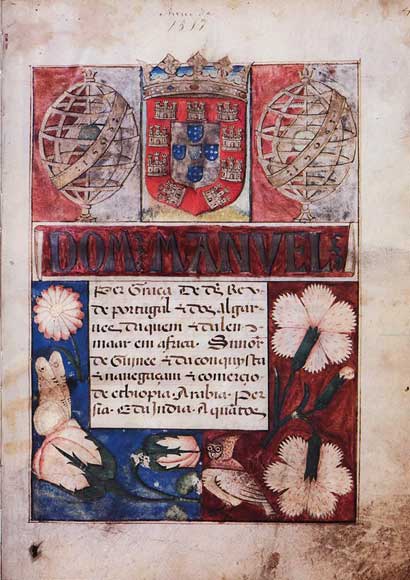 DOM MANVEL
Per Graca De ds Rey
de portugal & dos algar
ues daquem & dalem
maar em africa. Snnor
de Guinee & da conquysta
& nauegaçam & comercio
de ethiopia. Arabia. Per
sia. & da India. A quãtos